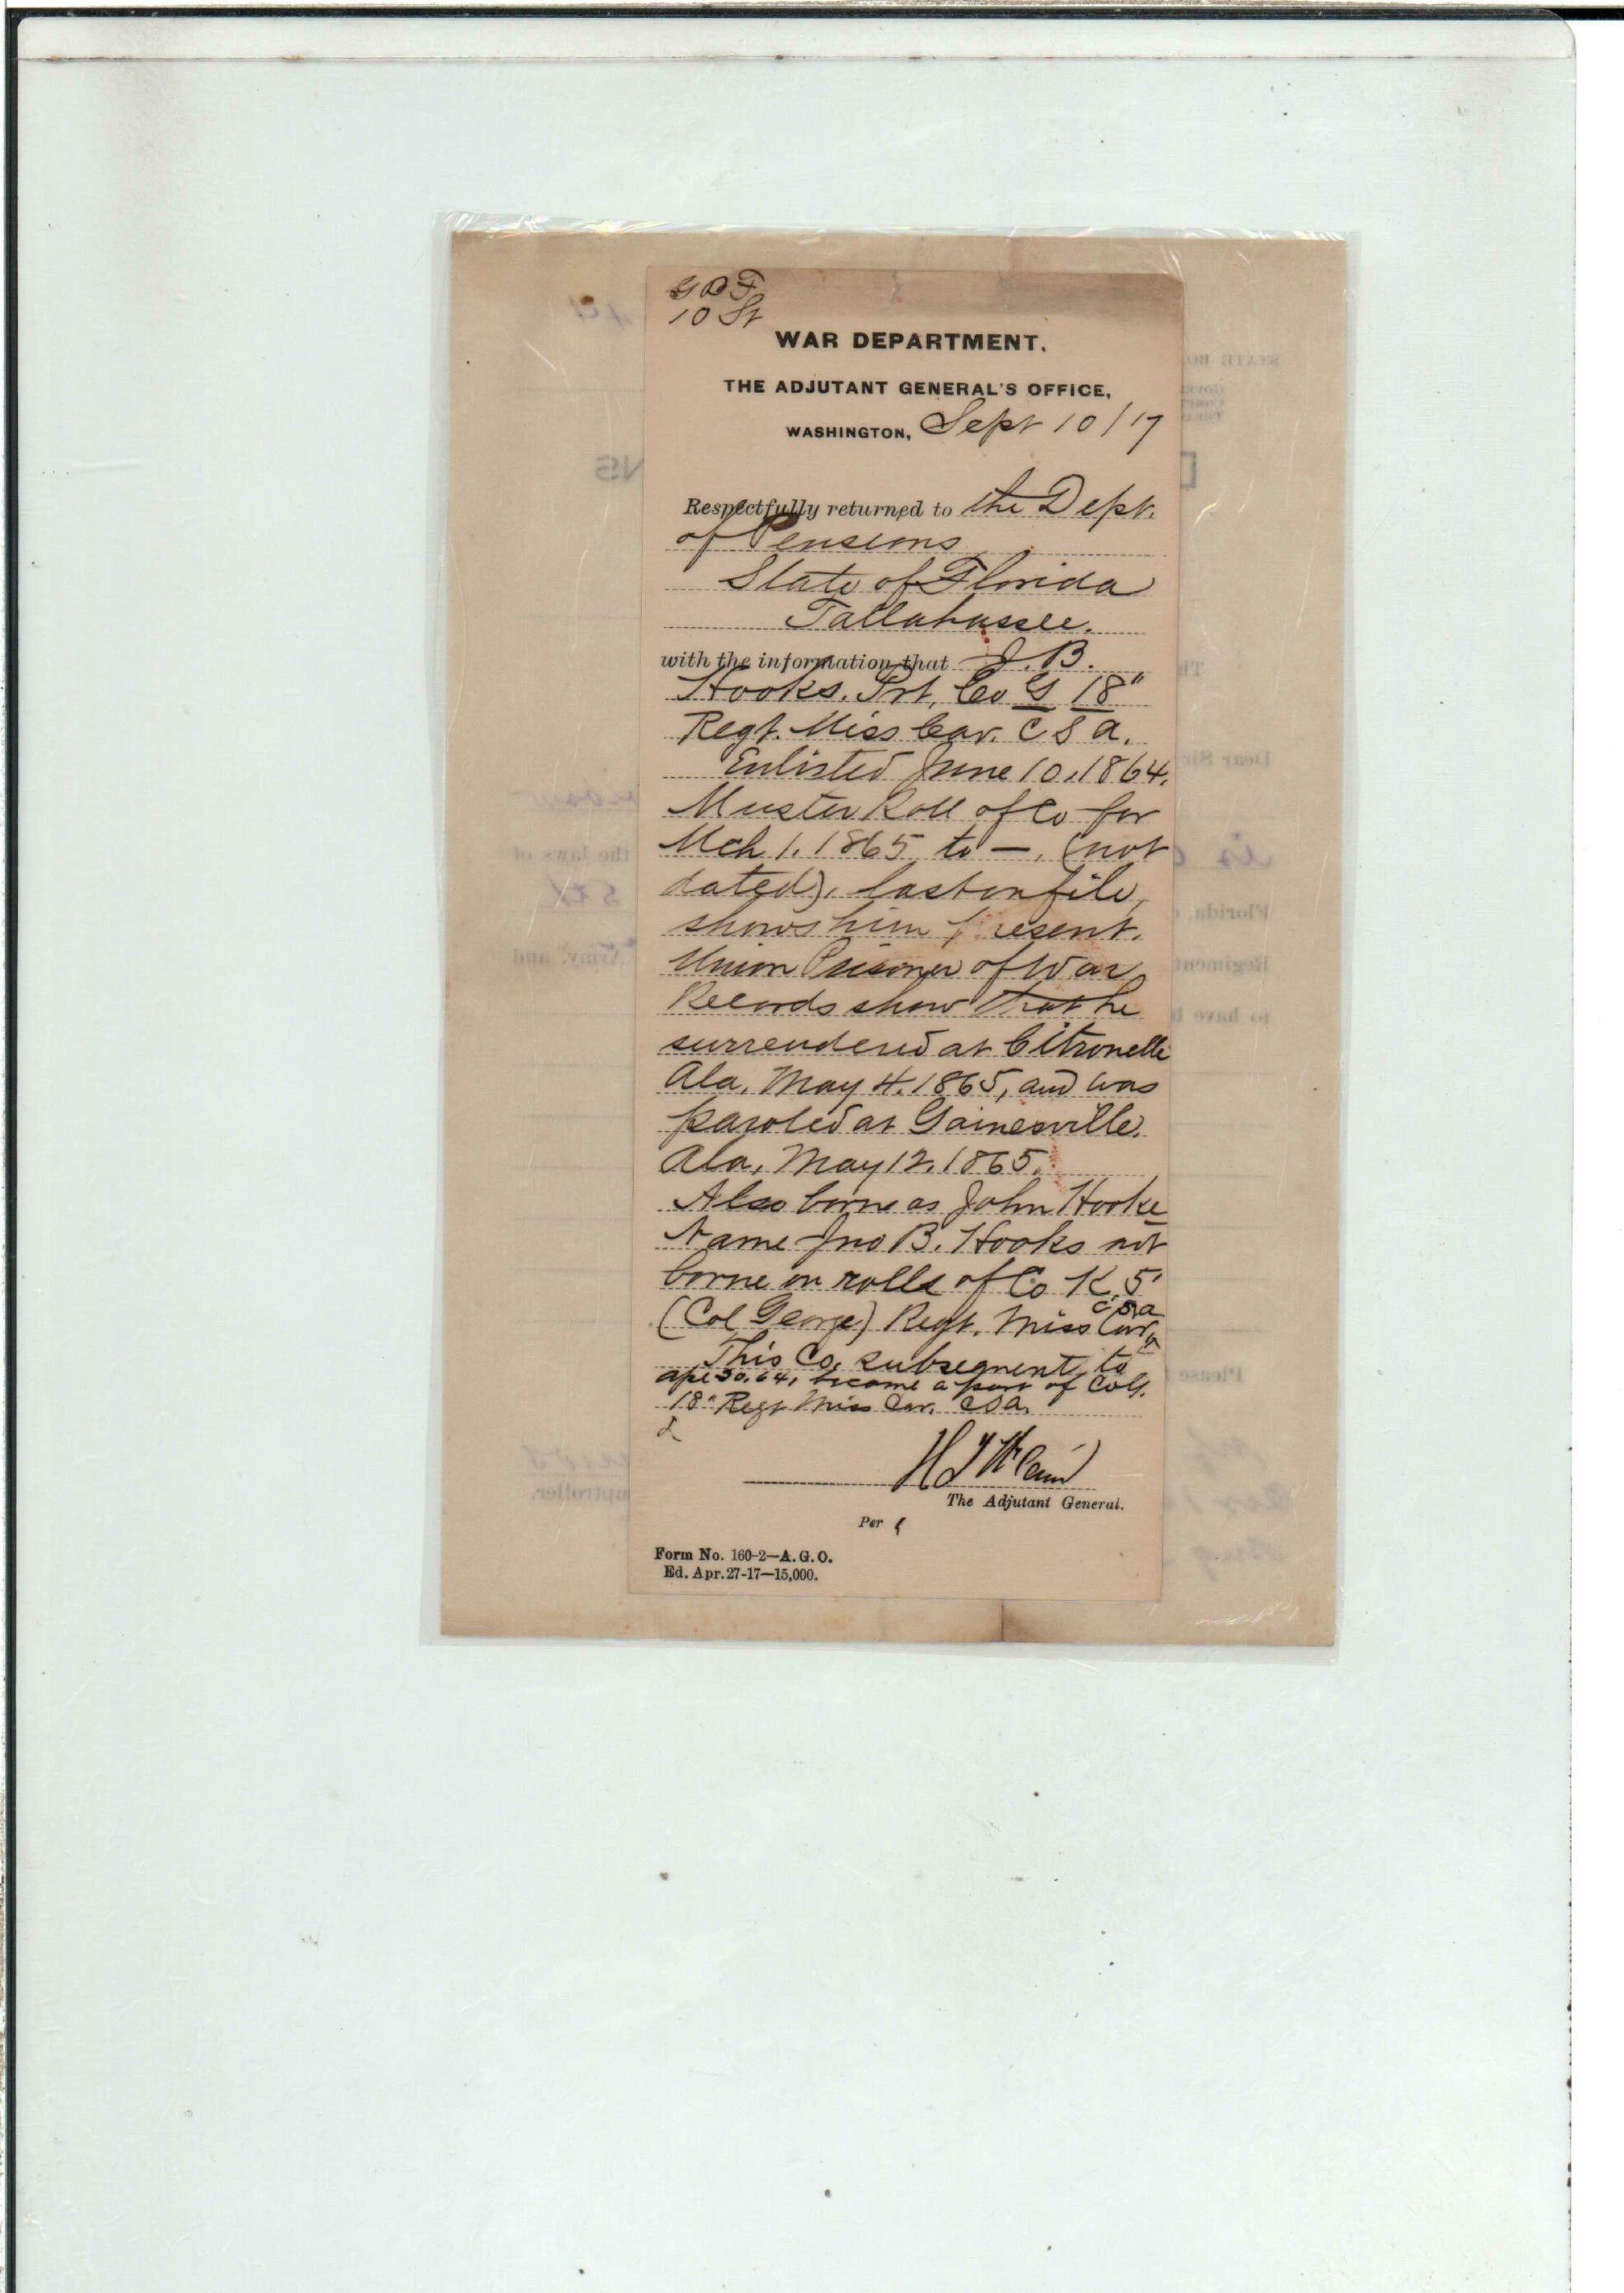 10 St
WAR DEPARTMENT.
THE ADJUTANT GENERAL'S OFFICE,
WASHINGTON, Sept 10/17
Respectfully returned to the Dept.
of Pensions
State of Florida
Tallahassee.
with the information that J. B.
Hooks, Prt, Co G 18"
Regt. Miss Cav. C S A.
Enlisted June 10, 1864.
Muster Roll of Co for
Mch 1. 1865 to —, (not
dated), last on file,
shows him present.
Union Prisoner of War
Records show that he
surrendered at Citronelle
Ala, May 4, 1865, and was
paroled at Gainesville,
Ala, May 12, 1865.
Also borne as John Hooke
Name Jno B. Hooks not
borne on rolls of Co K, 5"
(Col George) Regt. Miss Cav, CSA
This Co, subsequent to
Apl 30, 64, became a part of Co G,
18" Regt Miss Cav. CSA,
The Adjutant General.
Per
Form No. 160-2—A.G.O.
Ed. Apr. 27-17—15,000.